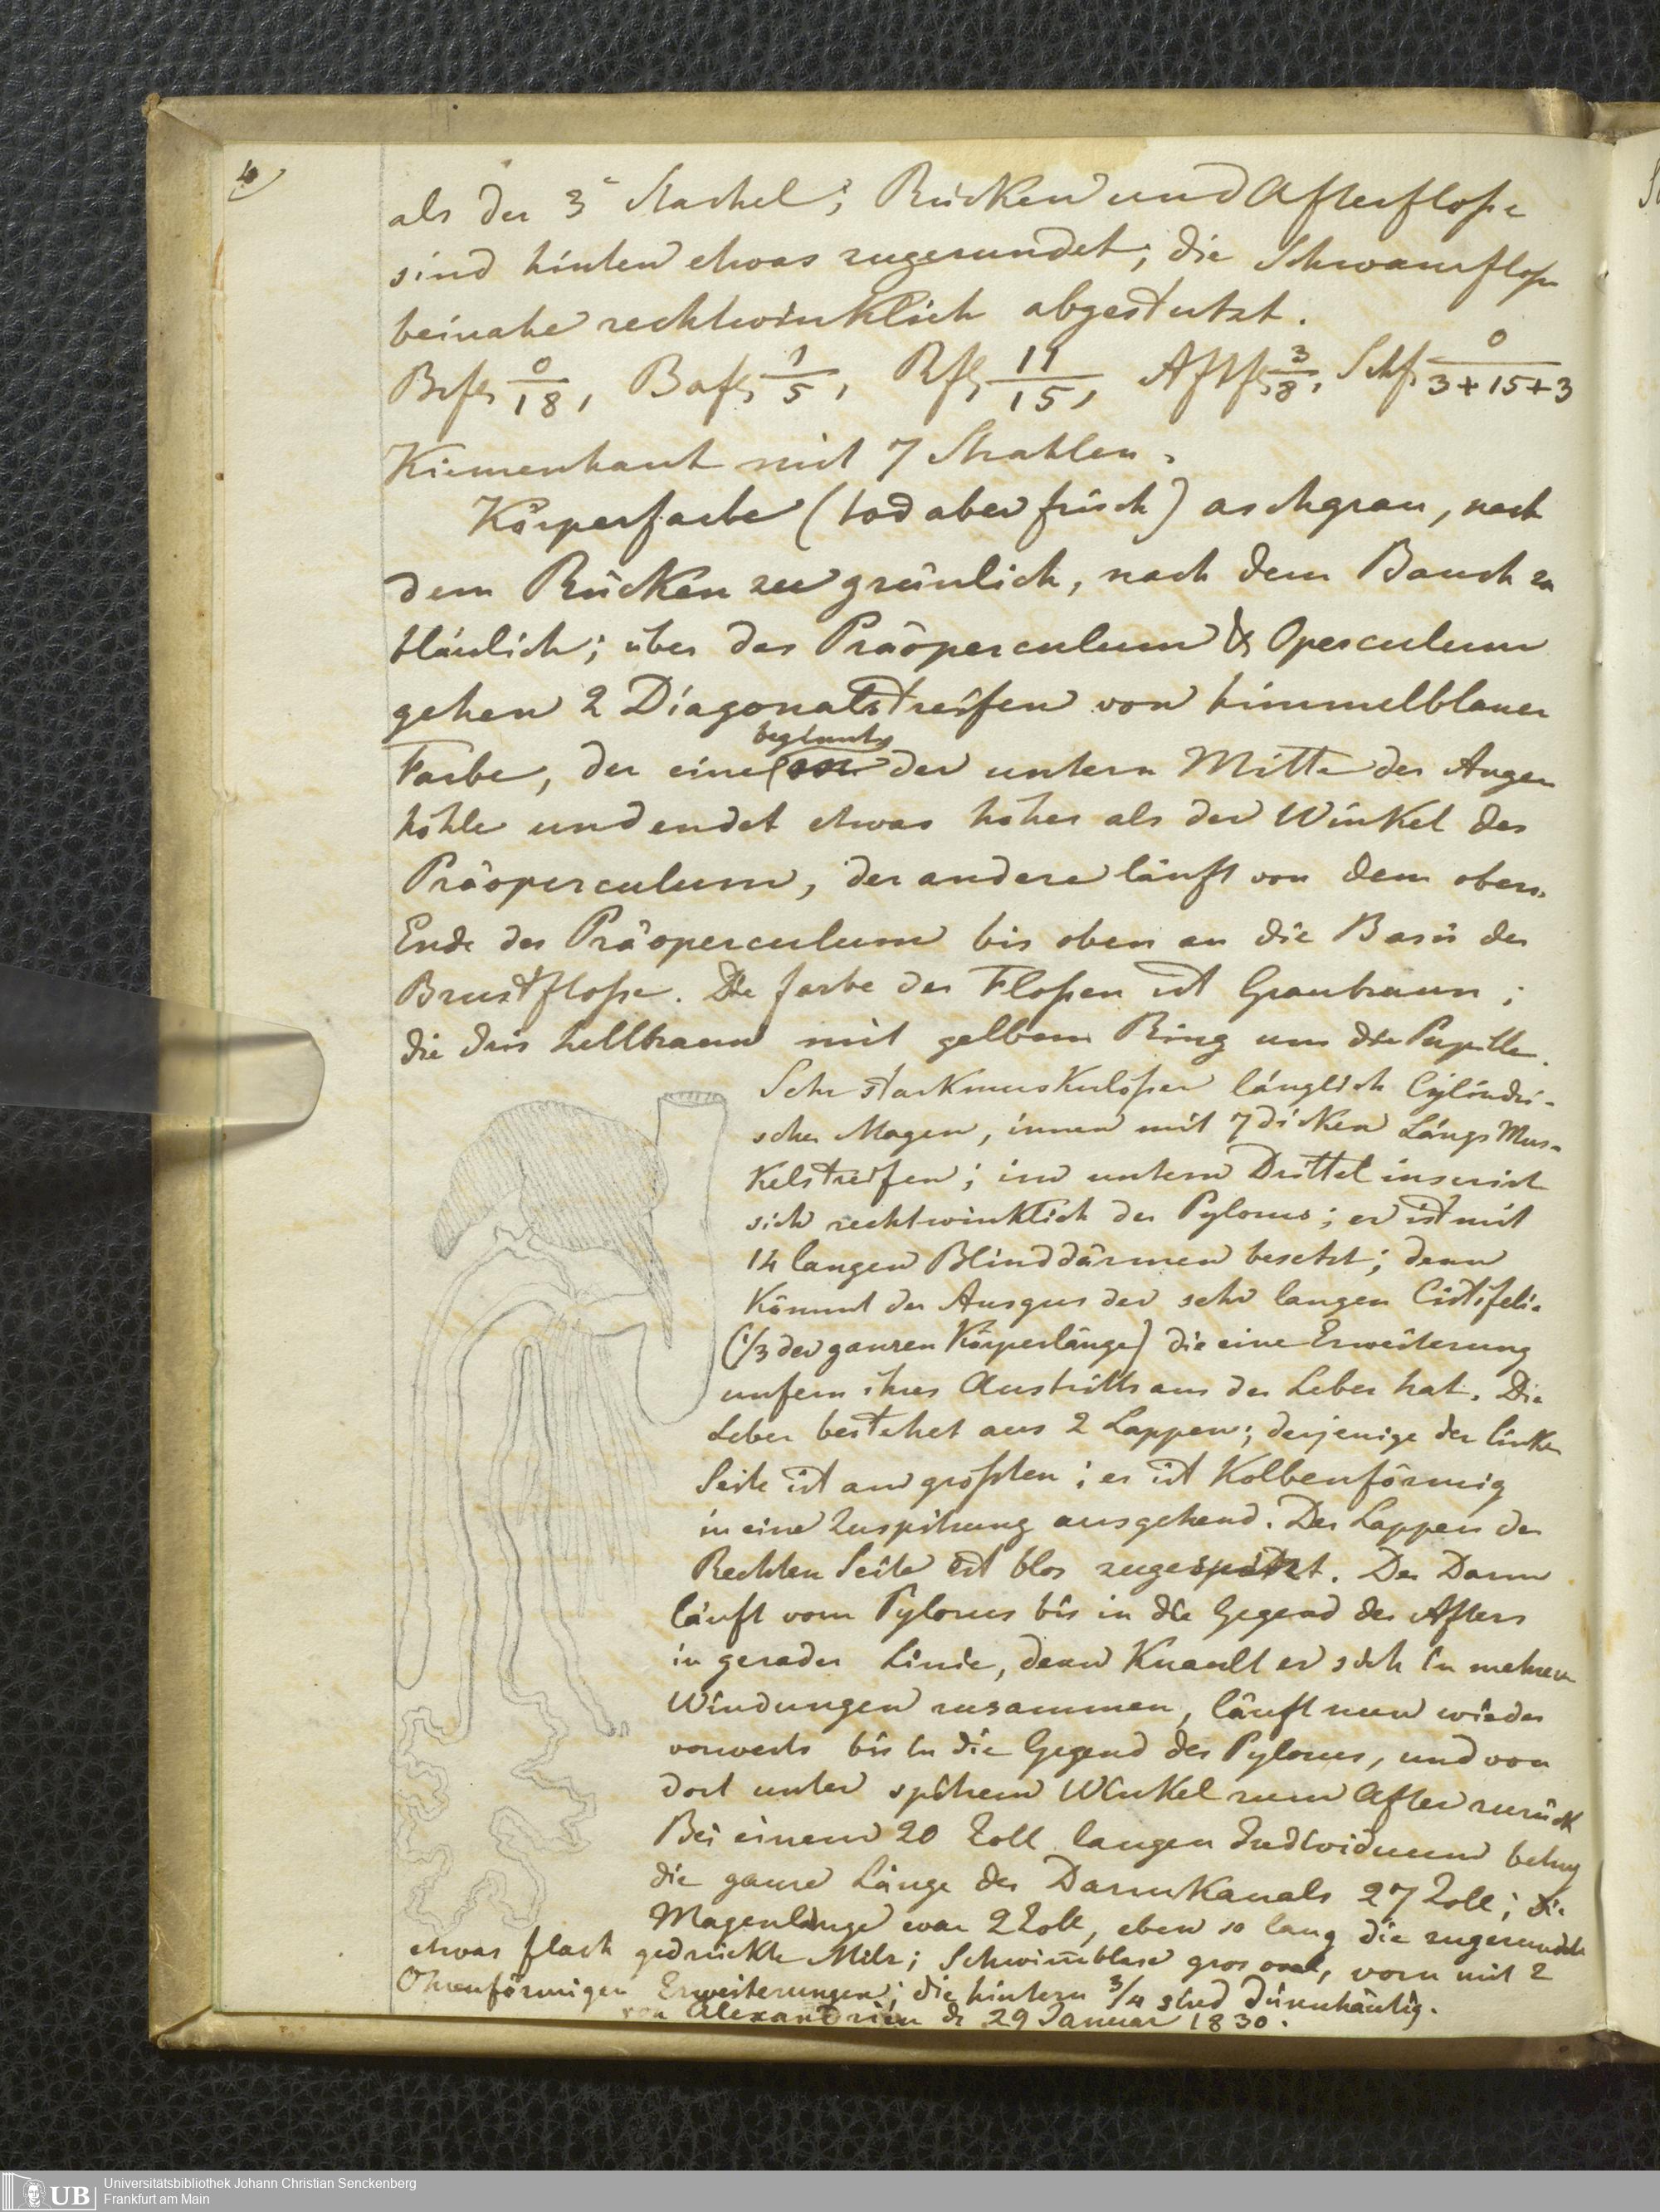 4
als der 3e Stachel; Rücken und Afterfloße
sind hinten etwas zugerundet; die Schwanzfloße
beinahe rechtwinklich abgestutzt.
Brfß 0/18, Bafß 1/5, Rfß 11/15, Aftfß 3/8, Schfß 0/3+15+3
Kiemenhaut mit 7 Strahlen.
Körperfarbe (tod aber frisch) aschgrau, nach
dem Rücken zu grünlich, nach dem Bauch zu
bläulich; über das Präoperculum & Operculum
gehen 2 Diagonalstreifen von himmelblauer
beginnt
Farbe, der eine von der untern Mitte der Augen
höhle und endet etwas höher als der Winkel des
Präoperculum, der andere läuft von dem obern
Ende des Präoperculum bis oben an die Basis der
Brustfloße. Die farbe der Floßen ist Graubraun;
die Iris hellbraun mit gelbem Ring um die Pupille.
Sehr starkmuskuloser länglich Cylindri-
scher Magen, innen mit 7 dicken Längs Mus-
kelstreifen; im untern Drittel inserirt
sich rechtwinklich der Pylorus; er ist mit
14 langen Blinddärmen besetzt; dann
kömmt der Ausgus der sehr langen Cistifelie
(1/3 der ganzen Körperlänge) die eine Erweiterung
unfern ihres Austritts aus der Leber hat. Die
Leber bestehet aus 2 Lappen; derjenige der linken
Seite ist am großten; er ist Kolbenförmig
in eine Zuspitzung ausgehend. Der Lappen der
Rechten Seite ist blos zugespitzt. Der Darm
läuft vom Pylorus bis in die Gegend des Afters
in gerader Linie, dann Knault er sich in mehrern
Windungen zusammen, läuft nun wieder
vorwerts bis in die Gegend des Pylorus, und von
dort unter spitzem Winkel zum After zurück
Bei einem 20 Zoll langen Individuum betrug
die ganze Länge des Darmkanals 27 Zoll; die
Magenlänge war 2 Zoll, eben so lang die zugerundete
etwas flach gedrückte Milz; Schwim̅blase gros oval, vorn mit 2
Ohrenförmigen Erweiterungen; die hintern 3/4 sind dünnhäutig.
von Alexandrien d. 29 Januar 1830.
UB
Universitätsbibliothek Johann Christian Senckenberg
Frankfurt am Main